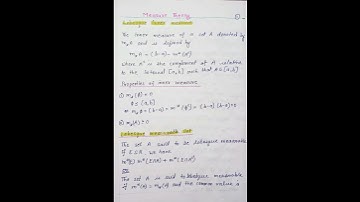 Measure Theory
①
Lebesgue Inner measure
The inner measure of a set A denoted by
m⁎A and is defined by
m⁎A = (b-a) - m*(A')
where A' is the complement of A relative
to the interval [a,b] such that A ⊆ [a,b]
Properties of inner measure
(1) m⁎(φ) = 0
φ ⊆ [a,b]
m⁎φ = (b-a) - m*(φ') = (b-a) - (b-a) = 0
(2) m⁎(A) ≥ 0
Lebesgue measurable set
The set A is said to be lebesgue measurable
if we have
The set A is said to be lebesgue measurable
if m*(A) = m⁎(A) and the common value